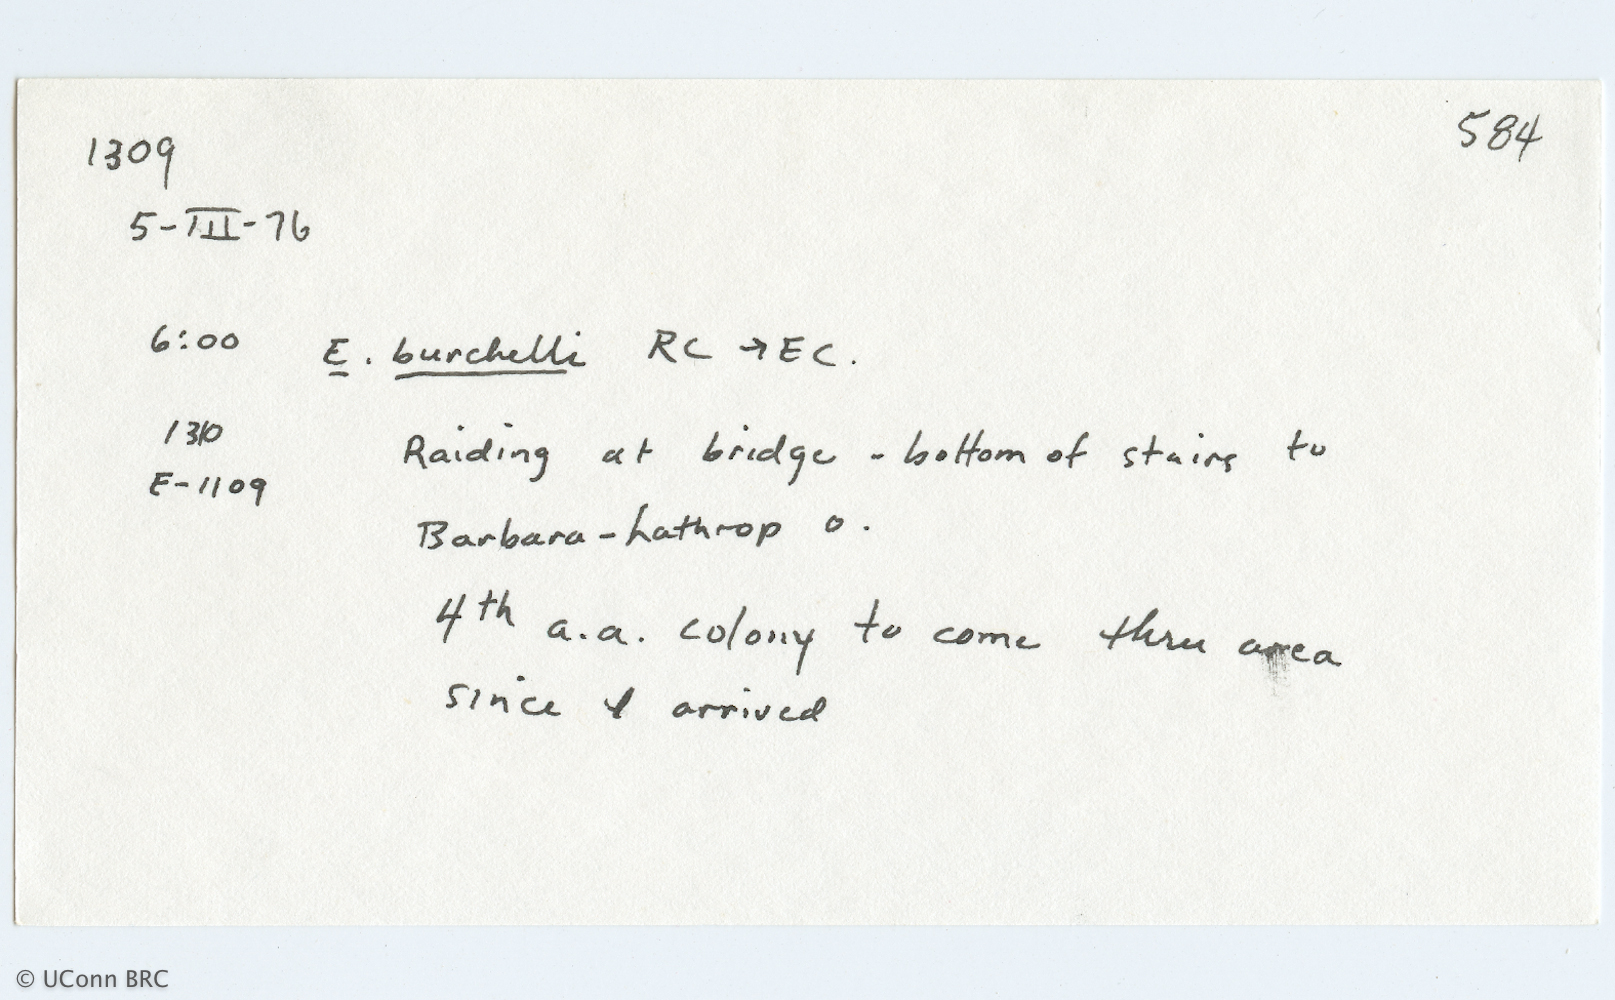 1309
584
5-III-76
6:00 E. burchelli RC → EC.
1310
E-1109
Raiding at bridge - bottom of stairs to
Barbara-Lathrop o.
4th a.a. colony to come thru area
since I arrived
© UConn BRC